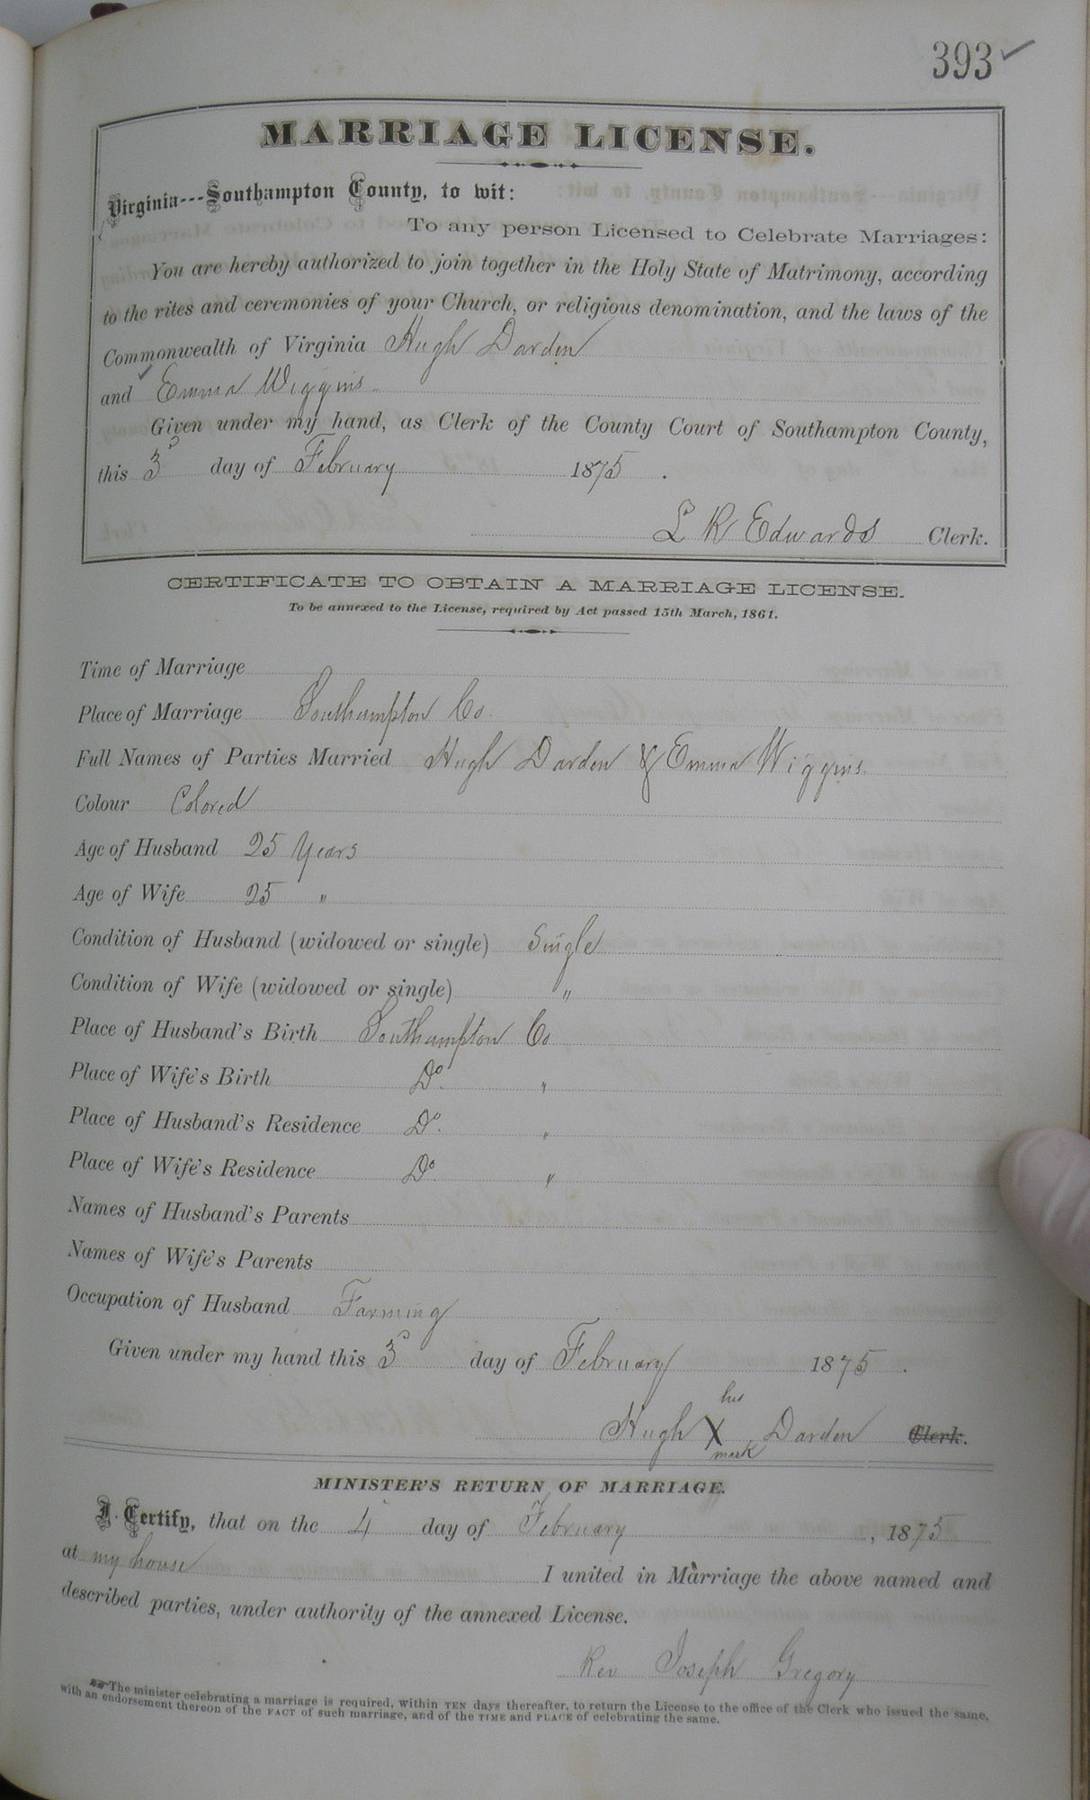 393 ✓
MARRIAGE LICENSE.
Virginia---Southampton County, to wit:
To any person Licensed to Celebrate Marriages:
You are hereby authorized to join together in the Holy State of Matrimony, according
to the rites and ceremonies of your Church, or religious denomination, and the laws of the
Commonwealth of Virginia Hugh Darden
and Emma Wiggins
Given under my hand, as Clerk of the County Court of Southampton County,
this 3d day of February 1875.
L R Edwards Clerk.
CERTIFICATE TO OBTAIN A MARRIAGE LICENSE.
To be annexed to the License, required by Act passed 15th March, 1861.
Time of Marriage
Place of Marriage Southampton Co.
Full Names of Parties Married Hugh Darden & Emma Wiggins.
Colour Colored
Age of Husband 25 Years
Age of Wife 25 "
Condition of Husband (widowed or single) Single
Condition of Wife (widowed or single) "
Place of Husband's Birth Southampton Co
Place of Wife's Birth Do. "
Place of Husband's Residence Do. "
Place of Wife's Residence Do. "
Names of Husband's Parents
Names of Wife's Parents
Occupation of Husband Farming
Given under my hand this 3d day of February 1875.
his
Hugh X Darden Clerk.
mark
MINISTER'S RETURN OF MARRIAGE.
I Certify, that on the 4 day of February, 1875
at my house I united in Marriage the above named and
described parties, under authority of the annexed License.
Rev Joseph Gregory
The minister celebrating a marriage is required, within TEN days thereafter, to return the License to the office of the Clerk who issued the same,
with an endorsement thereon of the FACT of such marriage, and of the TIME and PLACE of celebrating the same.